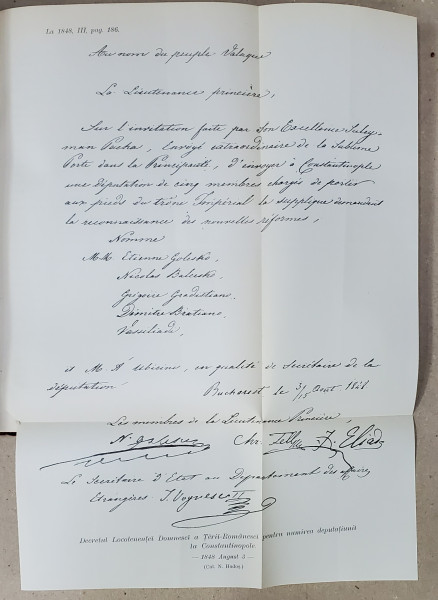 La 1848, III, pag. 186.
Au nom du peuple Valaque
La Lieutenance princière,
Sur l'invitation faite par Son Excellence Suley-
man Pacha, Envoyé extraordinaire de la Sublime
Porte dans la Principauté, d'envoyer à Constantinople
une députation de cinq membres chargés de porter
aux pieds du trône Impérial la supplique demandant
la reconnaissance des nouvelles réformes,
Nomme
M.M. Etienne Golesko,
Nicolas Balcesko,
Grégoire Gradistiano,
Dimitre Bratiano,
et M. A. Ubicini, en qualité de Secrétaire de la
députation.
Bucharest le 3/15 Août 1848
Les membres de la Lieutenance Princière,
N. Golesco Chr. Tell J. Eliad
Le Secrétaire d'Etat au Département des affaires
Etrangères J. Voynesco II
Decretul Locotenenței Domnesci a Țării-Românesci pentru numirea deputațiunii
la Constantinopole.
— 1848 August 3 —